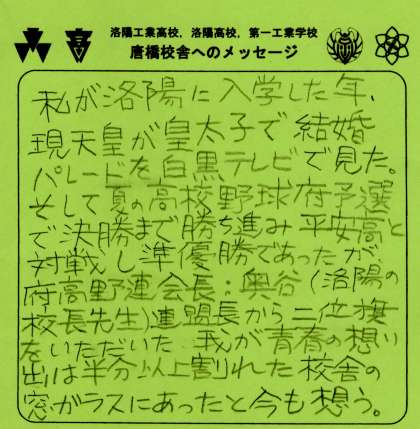 洛陽工業高校, 洛陽高校, 第一工業学校
唐橋校舎へのメッセージ
私が洛陽に入学した年、
現天皇が皇太子で結婚
パレードを白黒テレビで見た。
そして夏の高校野球府予選
で決勝まで勝ち進み平安高と
対戦し準優勝であったが、
府高野連会長:奥谷(洛陽の
校長先生)連盟長から二位旗
をいただいた 我が青春の想い
出は半分以上割れた校舎の
窓ガラスにあったと今も想う。